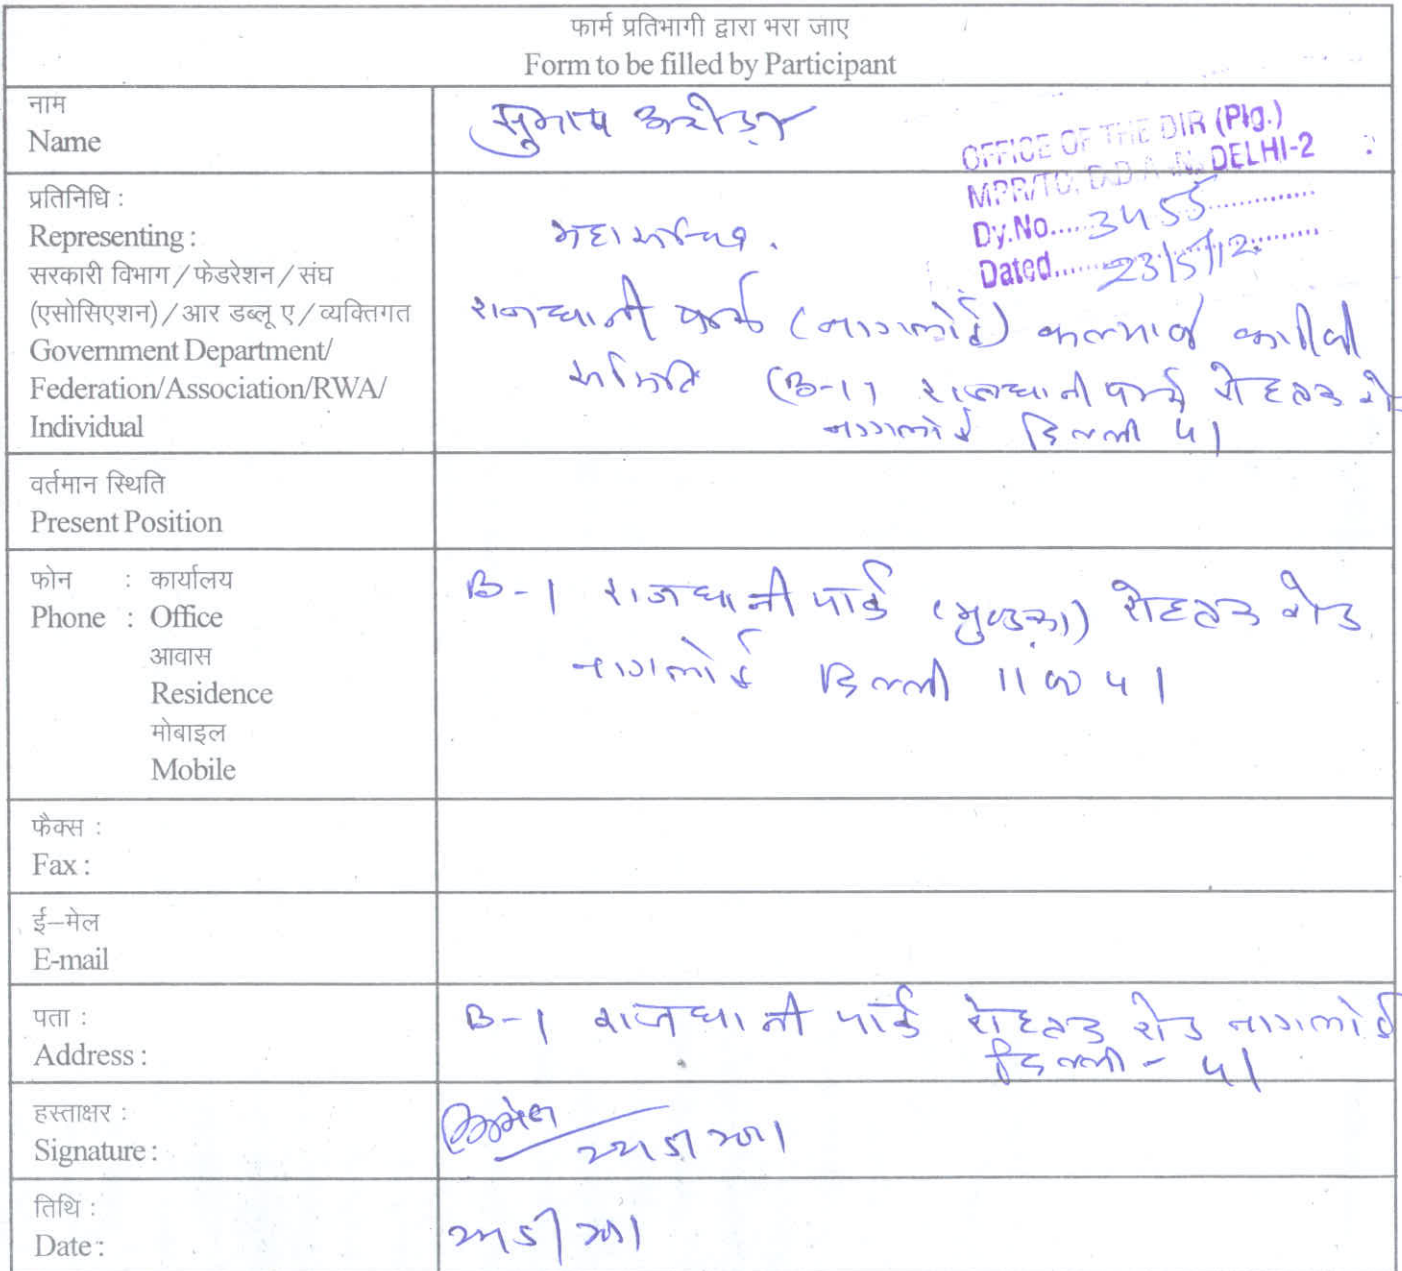 फार्म प्रतिभागी द्वारा भरा जाए
Form to be filled by Participant
नाम
Name
सुभाष अरोड़ा
OFFICE OF THE DIR (Plg.)
MPR/TC, D.D.A. N. DELHI-2
Dy.No.....3455
Dated......23/5/12
प्रतिनिधि :
Representing :
सरकारी विभाग / फेडरेशन / संघ
(एसोसिएशन) / आर डब्लू ए / व्यक्तिगत
Government Department/
Federation/Association/RWA/
Individual
महासचिव.
राजधानी पार्क (नागलोई) कल्याण कारीणी
समिति (B-1) राजधानी पार्क रोहतक रोड
नागलोई दिल्ली 41
वर्तमान स्थिति
Present Position
फोन : कार्यालय
Phone : Office
आवास
Residence
मोबाइल
Mobile
B-1 राजधानी पार्क (मुण्डका) रोहतक रोड
नागलोई दिल्ली 110041
फैक्स :
Fax :
ई–मेल
E-mail
पता :
Address :
B-1 राजधानी पार्क रोहतक रोड नागलोई
दिल्ली - 41
हस्ताक्षर :
Signature :
तिथि :
Date :